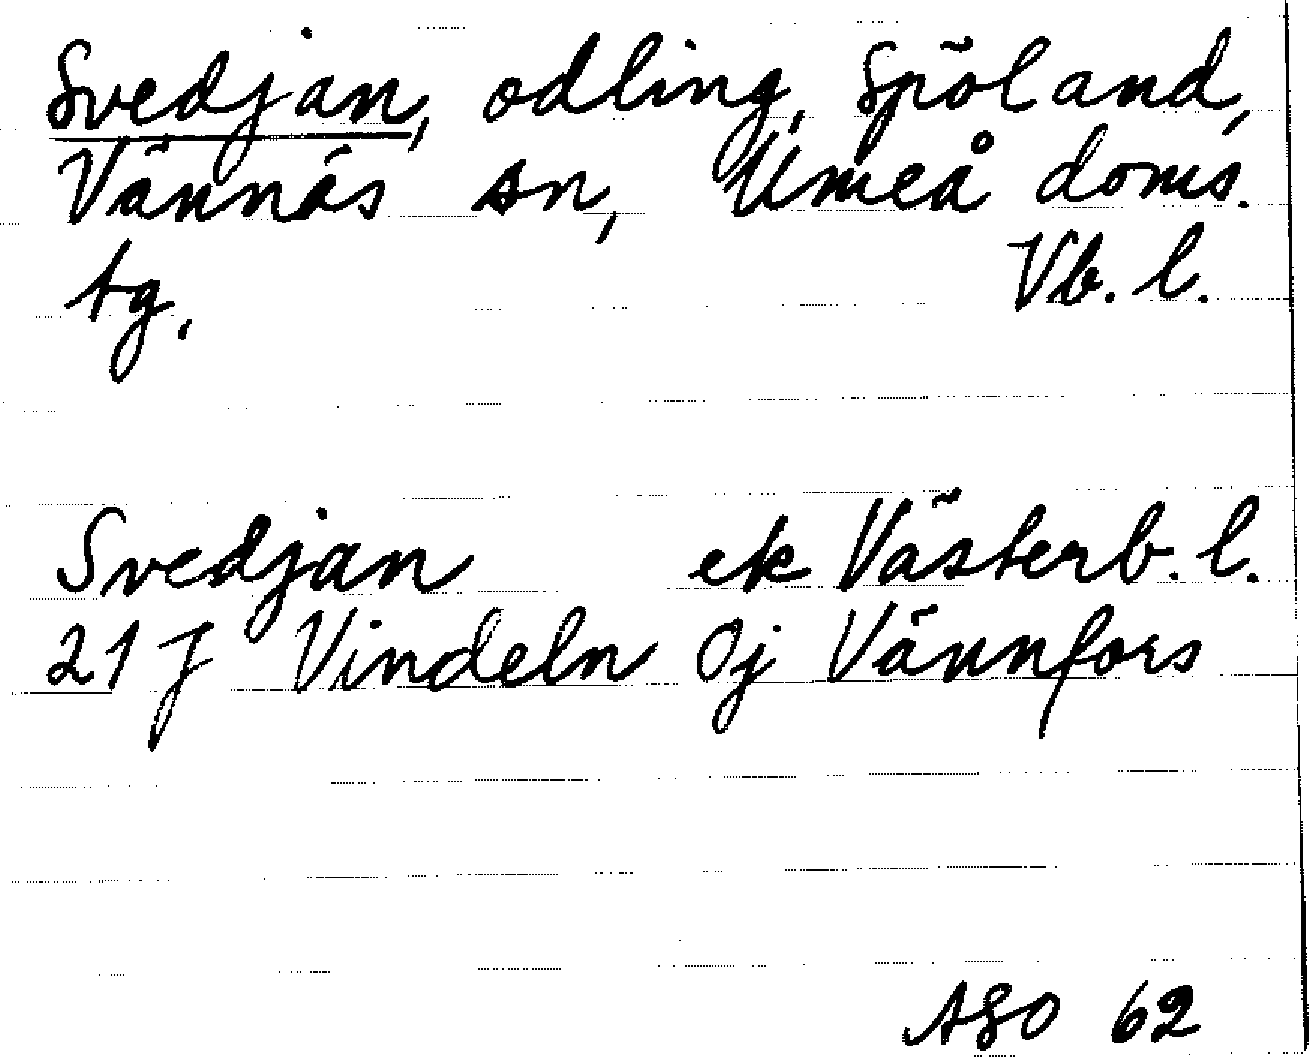 Svedjan, odling, Spöland,
Vännäs sn, Umeå doms.
tg. Vb. l.
Svedjan ek Västerb. l.
21 J Vindeln 0j Vännfors
ASO 62